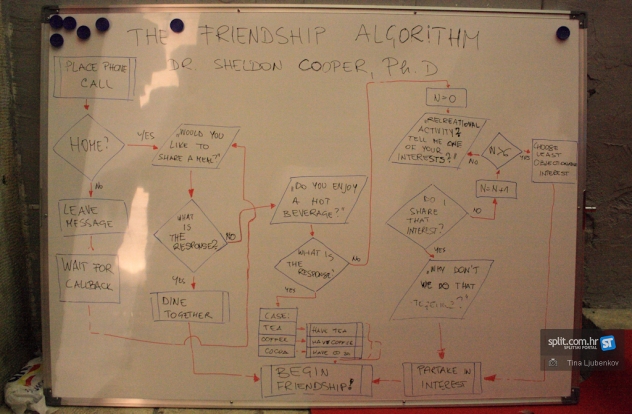 THE FRIENDSHIP ALGORITHM
DR. SHELDON COOPER, Ph.D
PLACE PHONE
CALL
HOME?
YES
NO
LEAVE
MESSAGE
WAIT FOR
CALLBACK
"WOULD YOU
LIKE TO
SHARE A MEAL?"
WHAT
IS
THE
RESPONSE?
NO
YES
DINE
TOGETHER
"DO YOU ENJOY
A HOT
BEVERAGE?"
WHAT IS
THE
RESPONSE?
NO
YES
CASE:
TEA
HAVE TEA
COFFEE
HAVE COFFEE
COCOA
BEGIN
FRIENDSHIP!
N=0
"RECREATIONAL
ACTIVITY?
TELL ME ONE
OF YOUR
INTERESTS?"
NO
N>6
YES
CHOOSE
LEAST
OBJECTIONABLE
INTEREST
N=N+1
DO I
SHARE
THAT
INTEREST?
NO
YES
"WHY DON'T
WE DO THAT
PARTAKE IN
INTEREST
split.com.hr
SPLITSKI PORTAL
ST
Tina Ljubenkov